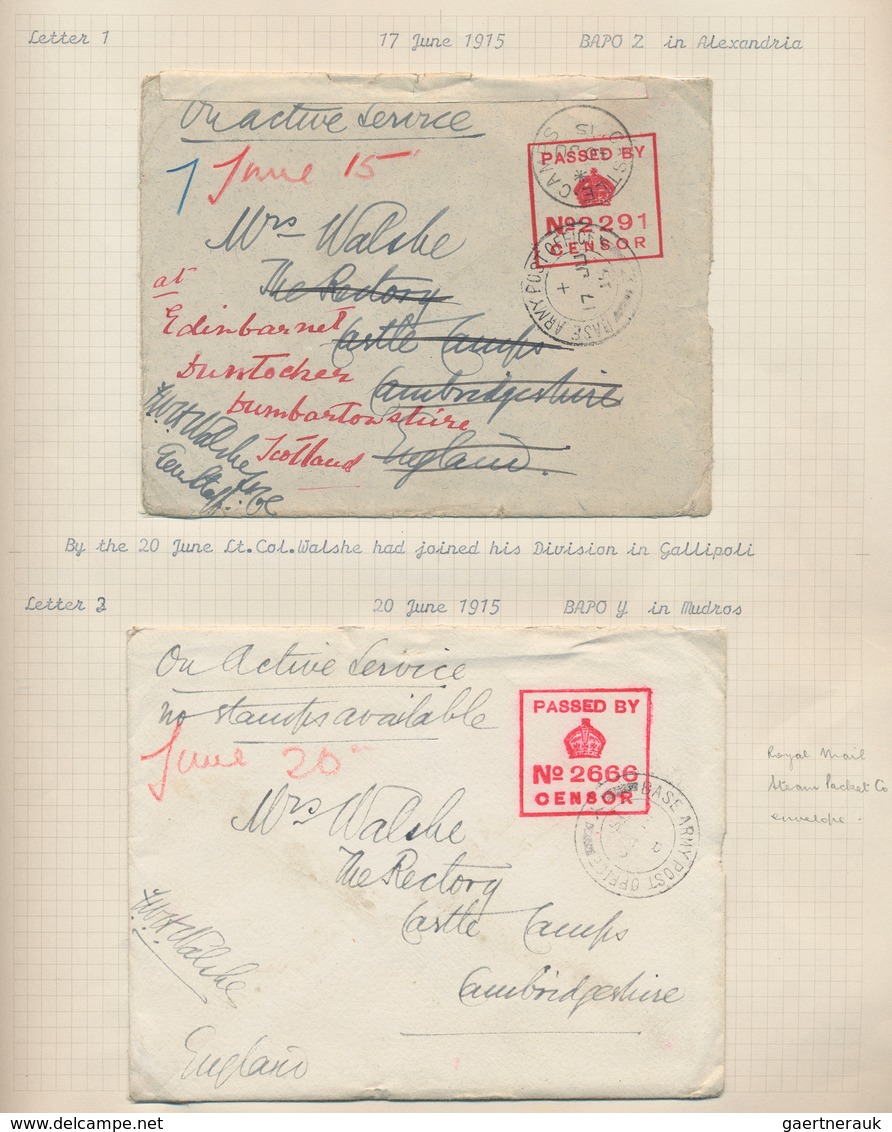 Letter 1 17 June 1915 BAPO Z in Alexandria
On active service
1 June 15
CASTLE CAMPS
PASSED BY
No 2291
CENSOR
BASE ARMY POST OFFICE
17 JU 15
Mrs Walshe
The Rectory
Castle Camps
Cambridgeshire
England.
at
Edinbarnet
Duntocher
Dumbartonshire
Scotland
F.W.H. Walshe
By the 20 June Lt.Col.Walshe had joined his Division in Gallipoli
Letter 2 20 June 1915 BAPO Y in Mudros
On Active Service
no stamps available
June 20
PASSED BY
No 2666
CENSOR
BASE ARMY POST OFFICE
Mrs Walshe
The Rectory
Castle Camps
Cambridgeshire
England
F.W.H. Walshe
Royal Mail
Steam Packet Co
envelope.
www.delcampe.net
gaertnerauk